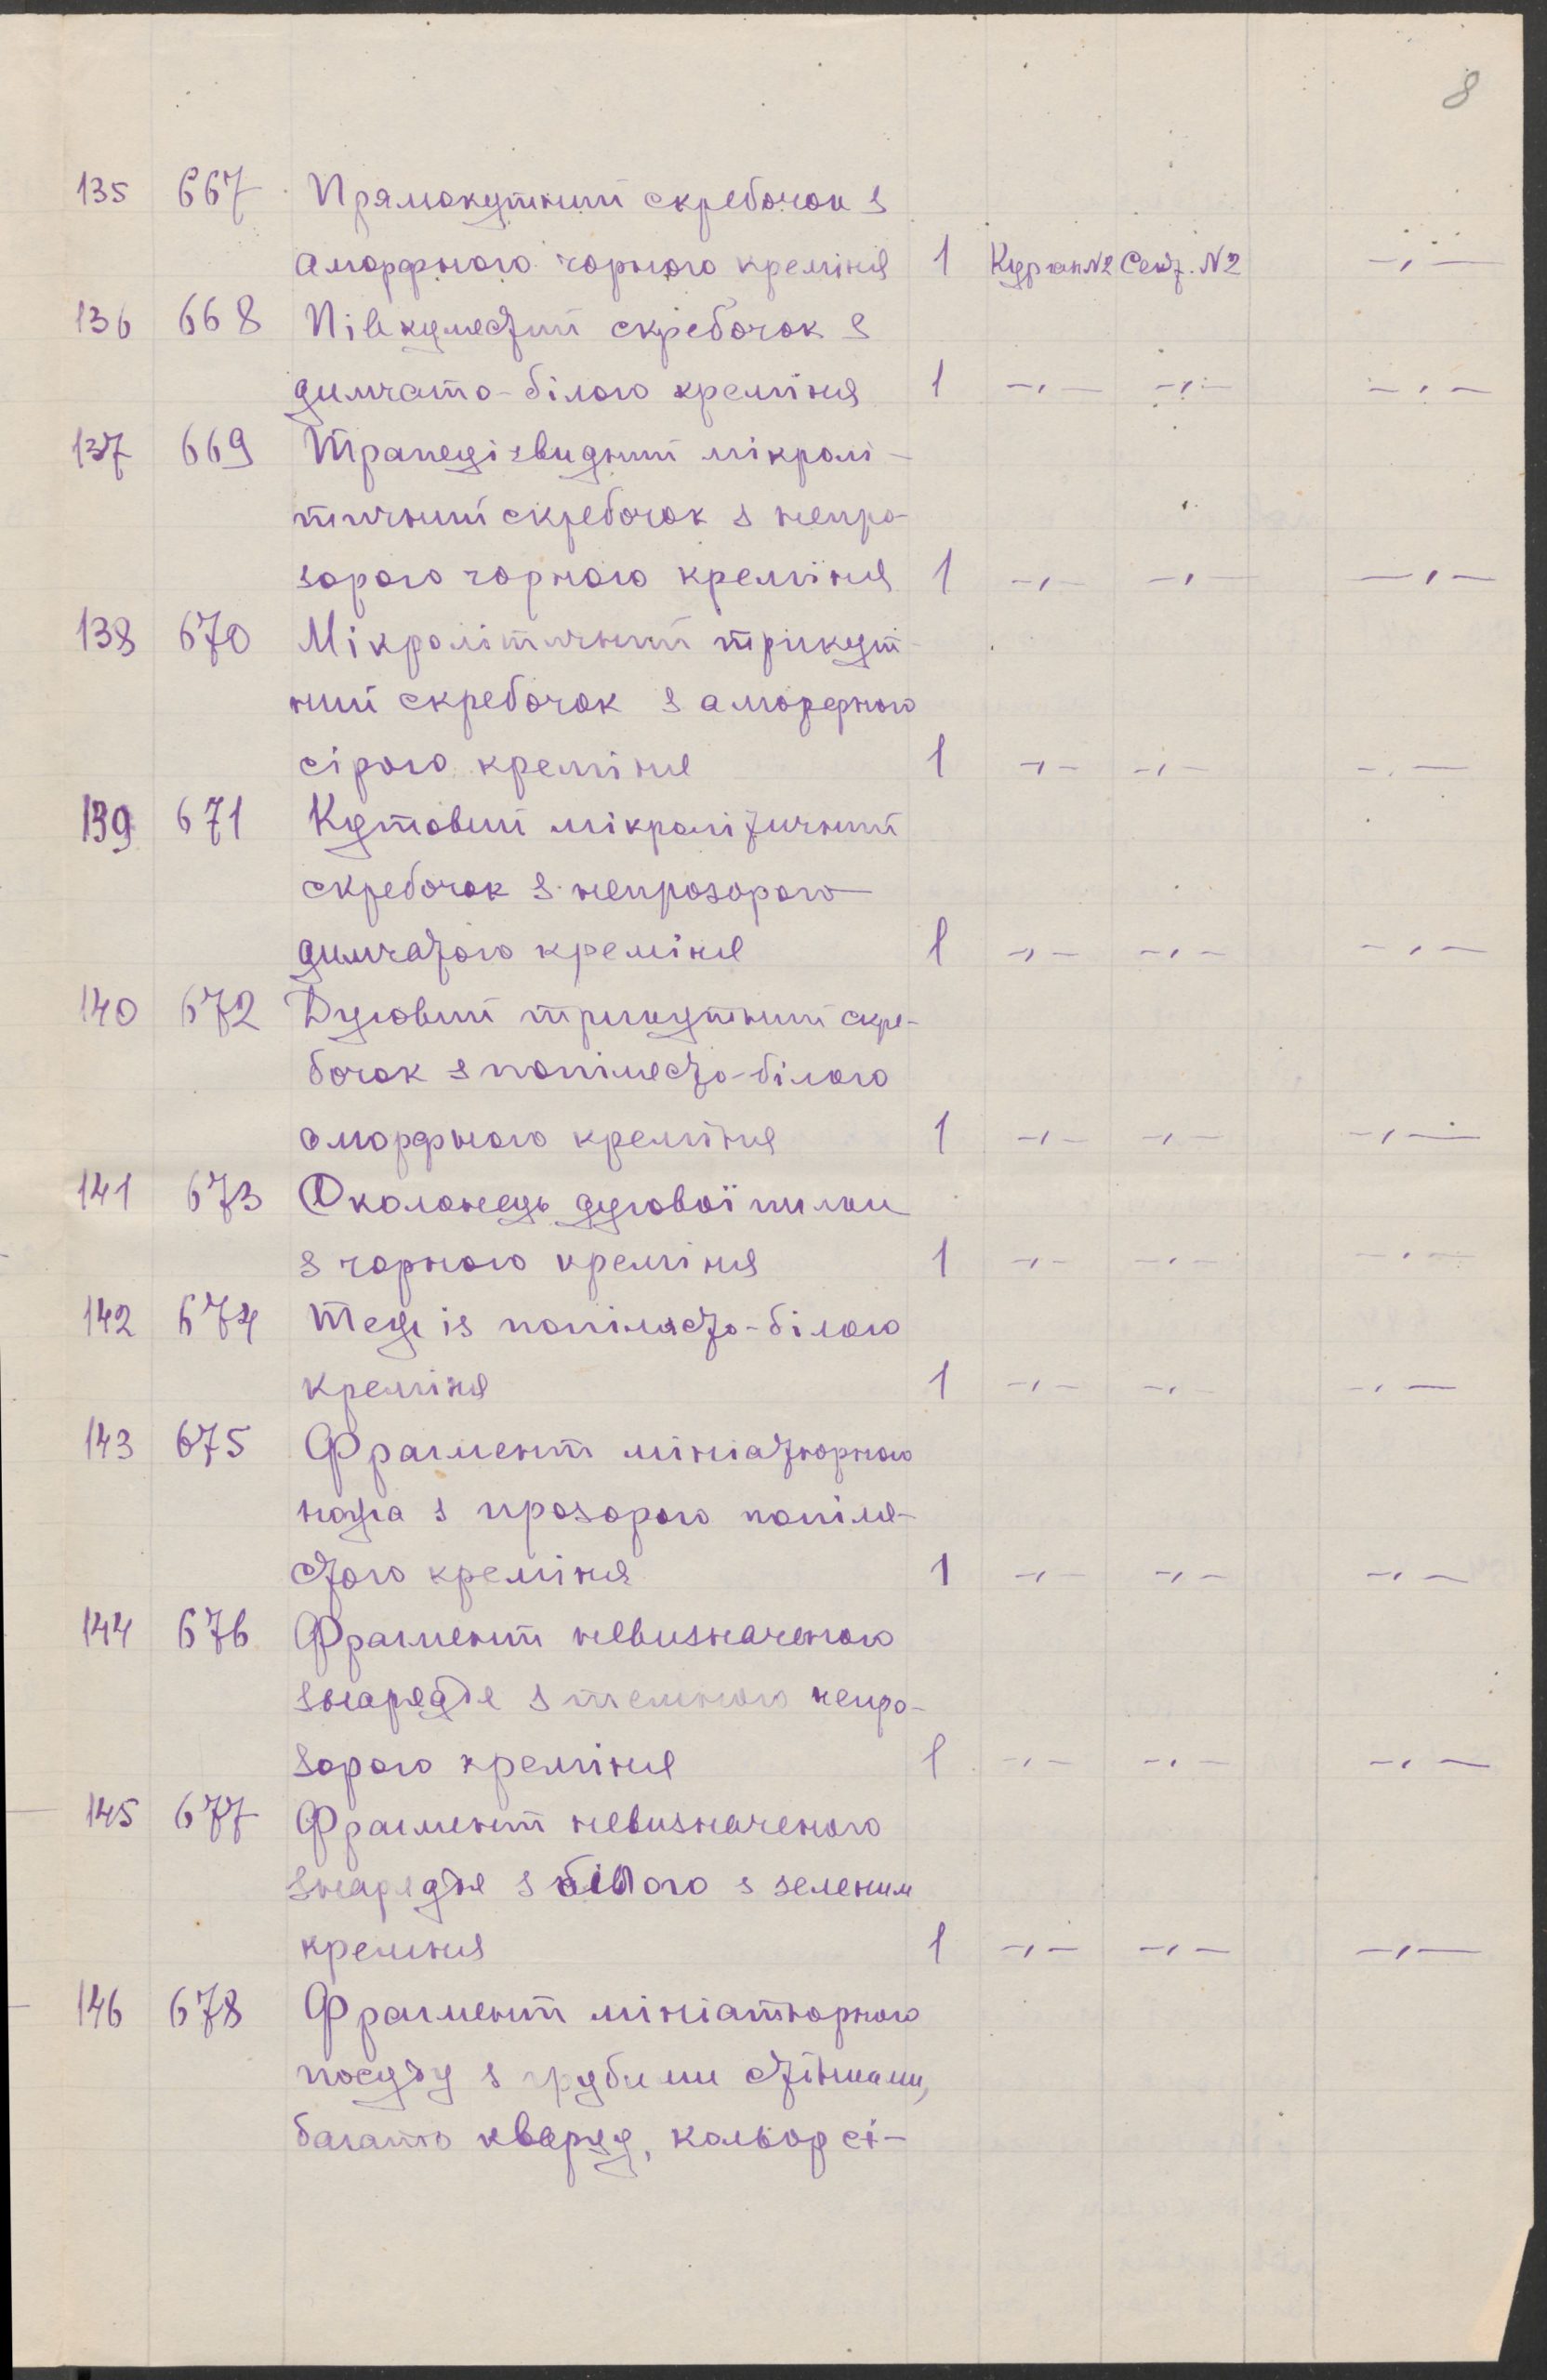 8
135 667 Прямокутний скребочок з
аморфного чорного креміня 1 Курган №2 Сект. №2 -"-
136 668 Півкулястий скребочок з
димчато-білого креміня 1 -"- -"- -"-
137 669 Трапеції звидний мікролі-
тичний скребочок з непро-
зорого чорного креміня 1 -"- -"- -"-
138 670 Мікролітичний трикут-
ний скребочок з аморфного
сірого креміня 1 -"- -"- -"-
139 671 Кутовий мікролітичний
скребочок з непрозорого
димчатого креміня 1 -"- -"- -"-
140 672 Дуговий трикутний скре-
бочок з попілясто-білого
аморфного креміня 1 -"- -"- -"-
141 673 Околонець дугової пилки
з чорного креміня 1 -"- -"- -"-
142 674 Теж із попілясто-білого
креміня 1 -"- -"- -"-
143 675 Фрагмент мініатюрного
ножа з прозорого попіля-
стого креміня 1 -"- -"- -"-
144 676 Фрагмент невизначеного
знаряддя з темного непро-
зорого креміня 1 -"- -"- -"-
145 677 Фрагмент невизначеного
знаряддя з білого з зеленим
креміня 1 -"- -"- -"-
146 678 Фрагмент мініатюрного
посуду з грубими стінками,
багато кварцу, кольор сі-